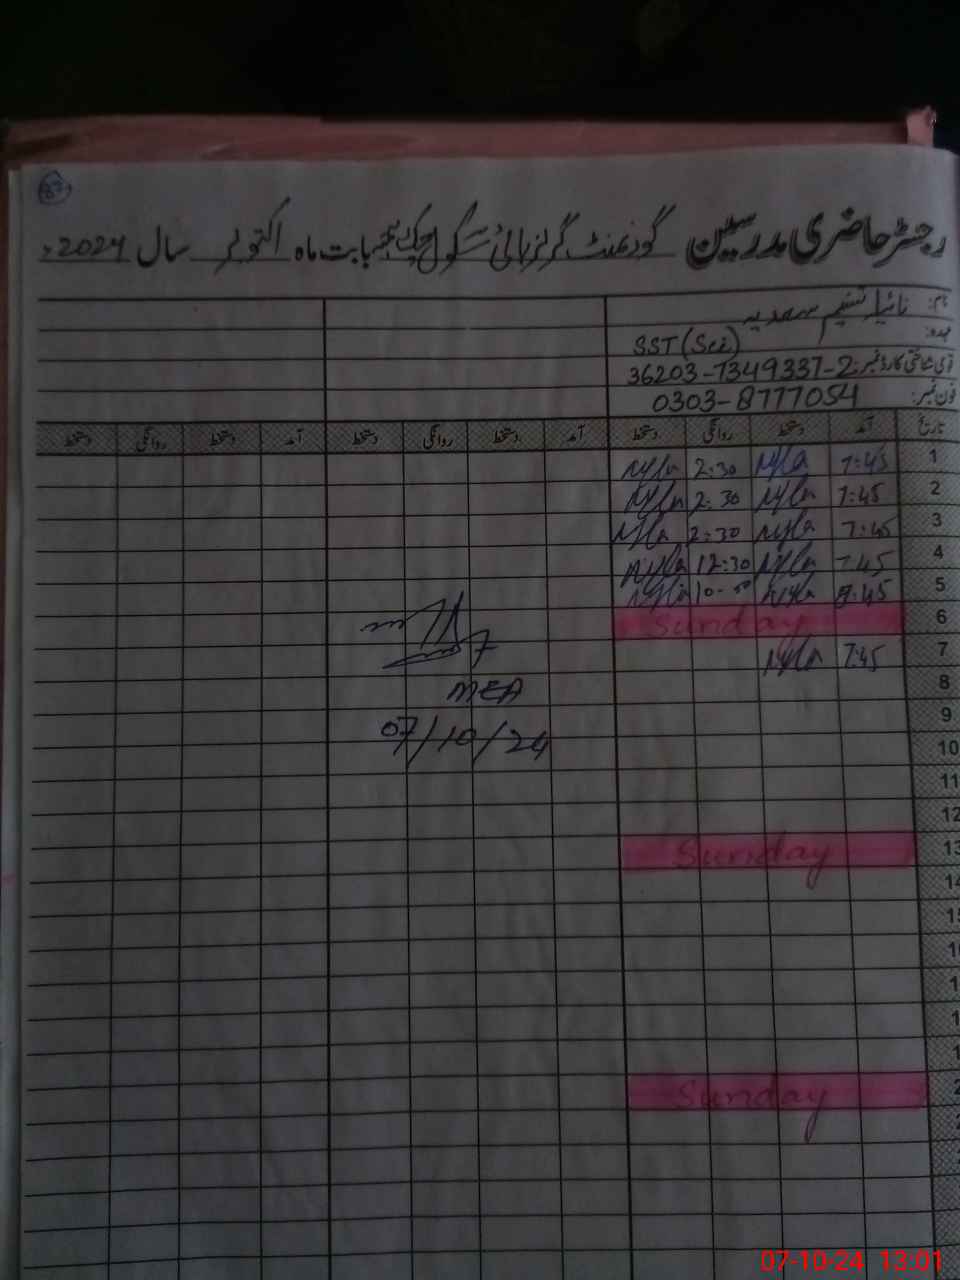 رجسٹر حاضری مدرسین گورنمنٹ گرلز ہائی سکول بابت ماہ اکتوبر سال 2024ء
نام: نائیلہ تسنیم سعدیہ
عہدہ: SST (Sci)
قومی شناختی کارڈ نمبر: 36203-7349337-2
فون نمبر: 0303-8777054
تاریخ آمد دستخط روانگی دستخط آمد دستخط روانگی دستخط آمد دستخط روانگی دستخط
1 7:45 Nyla 2:30 Nyla
2 7:45 Nyla 2:30 Nyla
3 7:45 Nyla 2:30 Nyla
4 7:45 Nyla 12:30 Nyla
5 :45 Nyla 10- Nyla
6 Sunday
7 7:45 Nyla
8
MEA
9
07/10/24
10
11
12
13 Sunday
14
15
Sunday
07-10-24 13:01